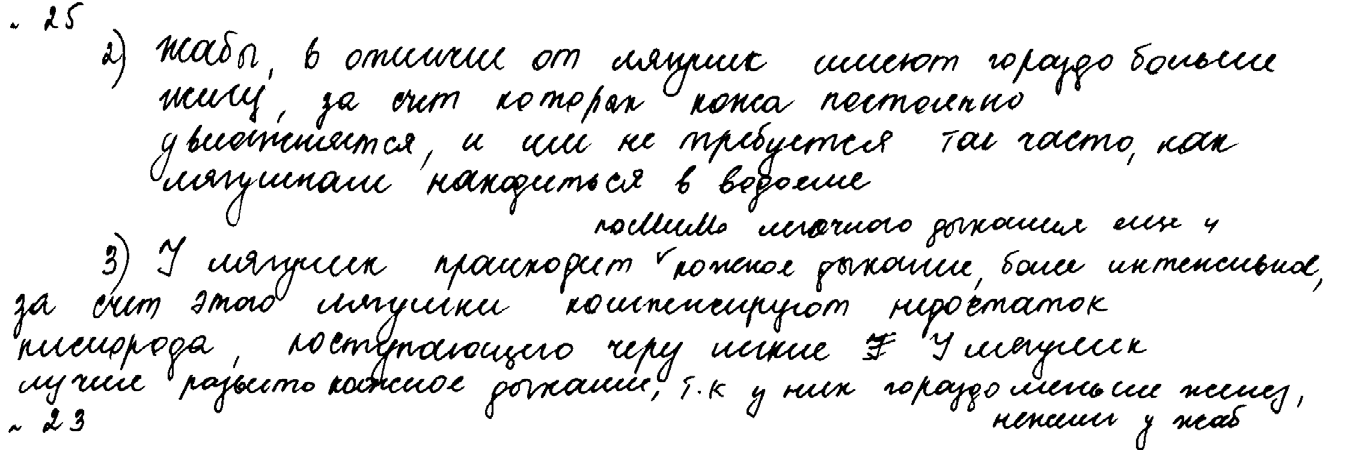 ~ 25
2) Жабы, в отличие от лягушек имеют гораздо больше
желез, за счет которых кожа постоянно
увлажняется, и им не требуется так часто, как
лягушкам находиться в водоеме
помимо легочного дыхания еще и
3) У лягушек происходит ᵛ кожное дыхание, более интенсивное,
за счет этого лягушки компенсируют недостаток
кислорода, поступающего через легкие У лягушек
лучше развито кожное дыхание, т.к у них гораздо меньше желез,
нежели у жаб
~ 23